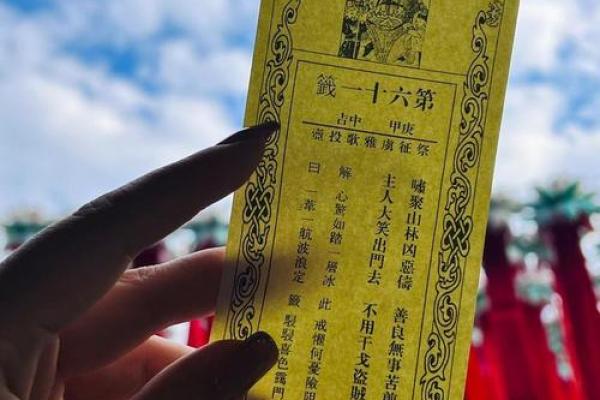 第六十一籤
庚甲 中吉
祭征虜雅歌投壺
嘯聚山林凶惡儔 善良無事苦煎
主人大笑出門去 不用干戈盜賊
解 心驚如踏一層冰 此 戒懼何憂險阻
曰 一葦一航波浪定 籤 駸駸喜色靄門